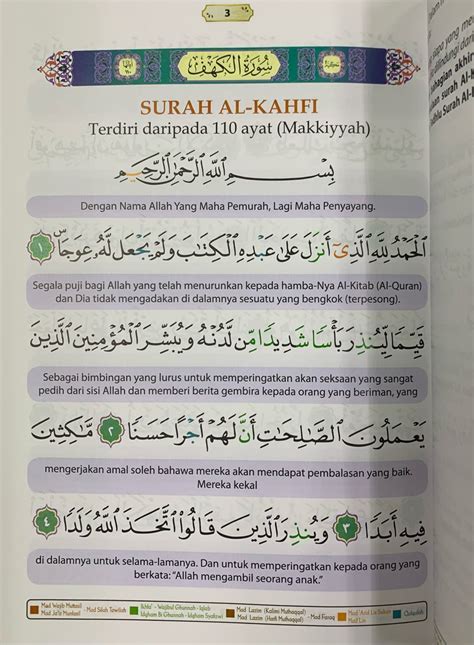 3
سورة الكهف
SURAH AL-KAHFI
Terdiri daripada 110 ayat (Makkiyyah)
بِسْمِ اللَّهِ الرَّحْمَٰنِ الرَّحِيمِ
Dengan Nama Allah Yang Maha Pemurah, Lagi Maha Penyayang.
الْحَمْدُ لِلَّهِ الَّذِي أَنزَلَ عَلَىٰ عَبْدِهِ الْكِتَابَ وَلَمْ يَجْعَل لَّهُ عِوَجًا ۜ ١
Segala puji bagi Allah yang telah menurunkan kepada hamba-Nya Al-Kitab (Al-Quran)
dan Dia tidak mengadakan di dalamnya sesuatu yang bengkok (terpesong).
قَيِّمًا لِّيُنذِرَ بَأْسًا شَدِيدًا مِّن لَّدُنْهُ وَيُبَشِّرَ الْمُؤْمِنِينَ الَّذِينَ
Sebagai bimbingan yang lurus untuk memperingatkan akan seksaan yang sangat
pedih dari sisi Allah dan memberi berita gembira kepada orang yang beriman, yang
يَعْمَلُونَ الصَّالِحَاتِ أَنَّ لَهُمْ أَجْرًا حَسَنًا ٢ مَّاكِثِينَ
mengerjakan amal soleh bahawa mereka akan mendapat pembalasan yang baik.
Mereka kekal
فِيهِ أَبَدًا ٣ وَيُنذِرَ الَّذِينَ قَالُوا اتَّخَذَ اللَّهُ وَلَدًا ٤
di dalamnya untuk selama-lamanya. Dan untuk memperingatkan kepada orang yang
berkata: "Allah mengambil seorang anak."
Mad Wajib Muttasil - Mad Silah Tawilah Ikhfa' - Wajibul Ghunnah - Iqlab Mad Lazim (Kalimi Muthaqqal) - Mad Farq Mad 'Arid Lis Sukun Qalqalah
Mad Ja'iz Munfasil Idgham Bi Ghunnah - Idgham Syafawi Mad Lazim (Harfi Muthaqqal) Mad Lin